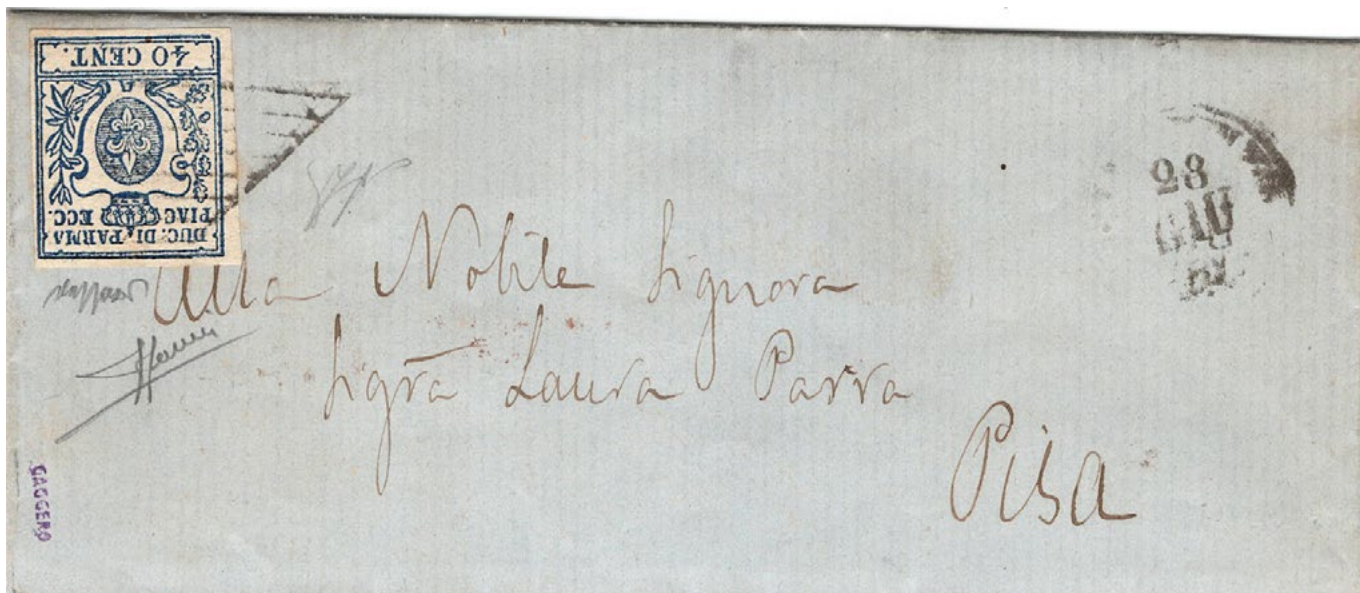 40 CENT.
DUC. DI PARMA
PIAC ECC.
28
GIU
Alla Nobile Signora
Sigra Laura Parra
Pisa
GAGGERO